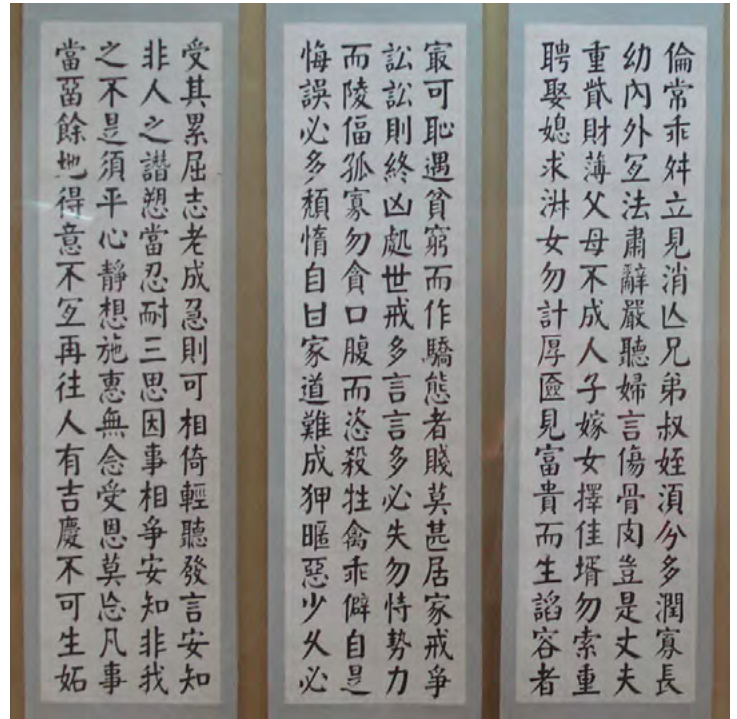 倫常乖舛立見消亾兄弟叔姪湏分多潤寡長
幼內外冝法肅辭嚴聽婦言傷骨肉豈是丈夫
重貲財薄父母不成人子嫁女擇佳壻勿索重
聘娶媳求淑女勿計厚匳見富貴而生諂容者
冣可恥遇貧窮而作驕態者賤莫甚居家戒爭
訟訟則終凶處世戒多言言多必失勿恃勢力
而陵偪孤寡勿貪口腹而恣殺牲禽乖僻自是
悔誤必多頹惰自甘家道難成狎暱惡少久必
受其累屈志老成急則可相倚輕聽發言安知
非人之譖愬當忍耐三思因事相爭安知非我
之不是須平心靜想施惠無念受恩莫忘凡事
當畱餘地得意不冝再往人有吉慶不可生妬